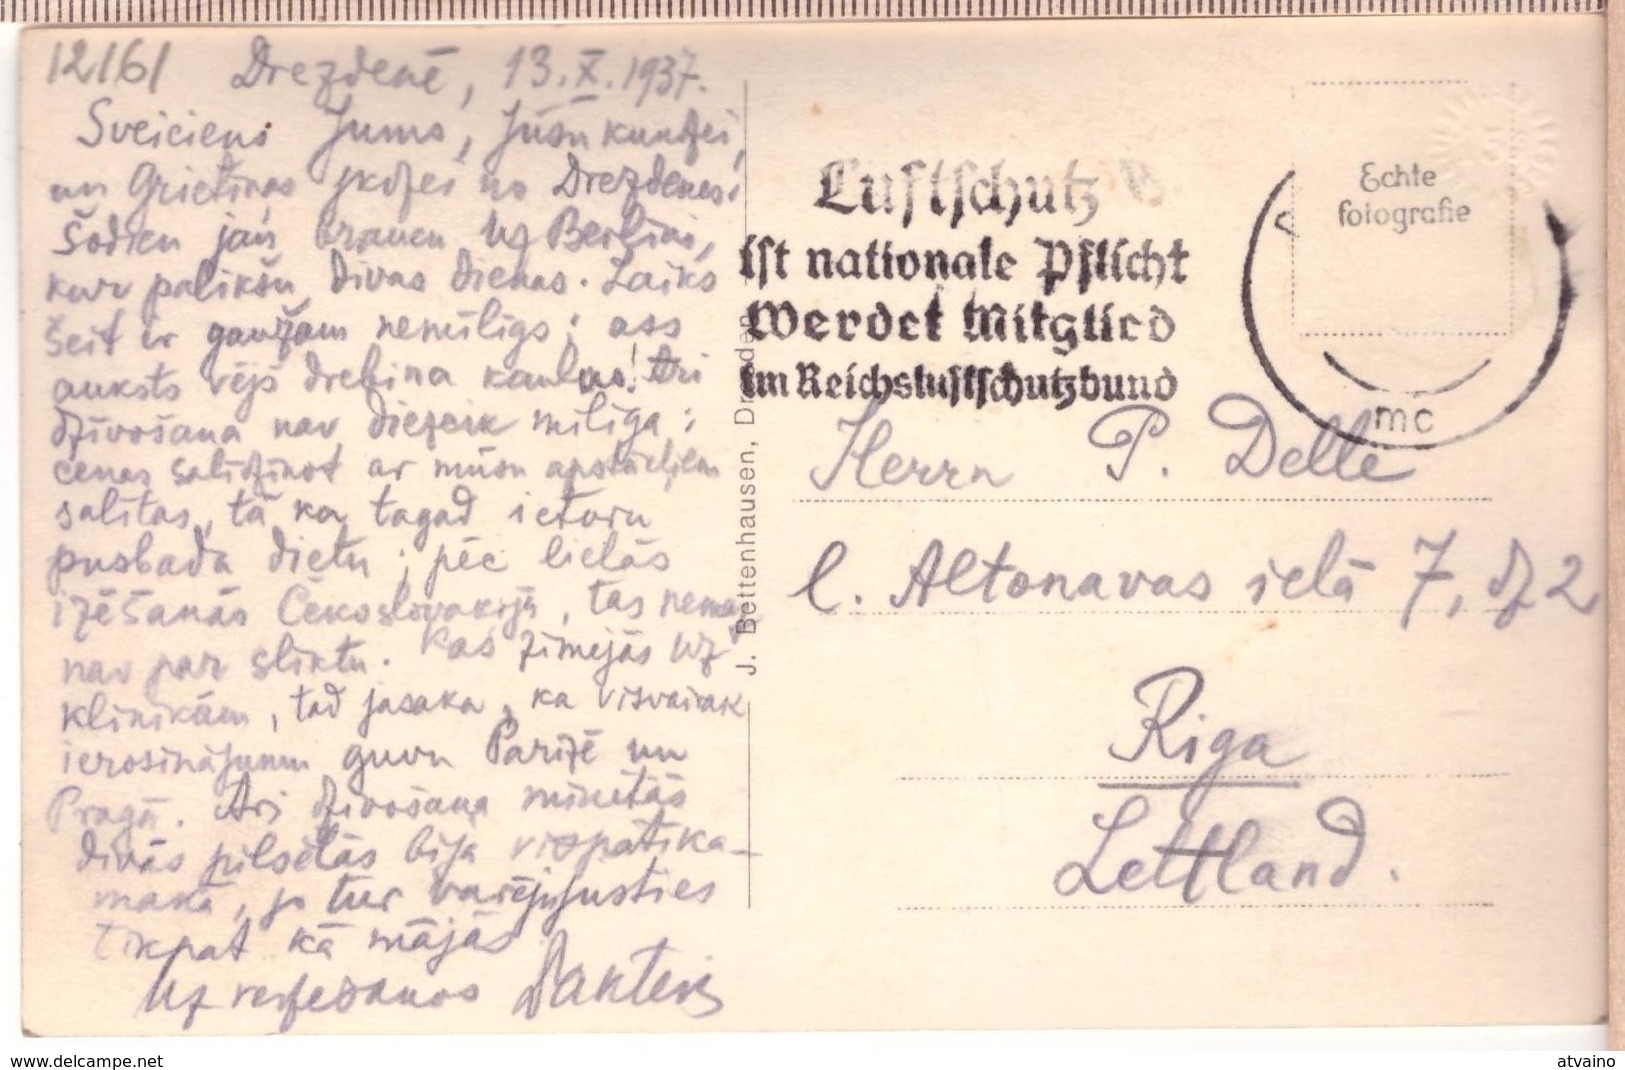 12161
Drezdenē, 13.X.1937.
Sveiciens Jums, Jūsu kundzei,
un Grietiņas no Drezdenes.
Šodien jau braucu uz Berlīni,
kur palikšu divas dienas. Laiks
šeit ir gaužam nemīlīgs; ass
auksts vējš drebina kaulus! Arī
dzīvošana nav diezcik mīlīga:
cenas salīdzinot ar mūsu apstākļiem
sālītas, tā ka tagad ieturu
pusbada dietu; pēc lielās
izēšanās Čekoslovakijā, tas nemaz
nav par sliktu. Kas zīmējās uz
klinikām, tad jasaka, ka visvairāk
ierosinājumu guvu Parīzē un
Pragā. Arī dzīvošana minētās
divās pilsētās bija vispatīka-
mākā, jo tur varēja justies
tikpat kā mājās
Uz redzēšanos
J. Bettenhausen, Dresden
Luftschutz
ist nationale Pflicht
Werdet Mitglied
im Reichsluftschutzbund
Echte
fotografie
mc
Herrn P. Delle
l. Altonavas ielā 7, dz 2
Riga
Lettland.
www.delcampe.net
atvaino